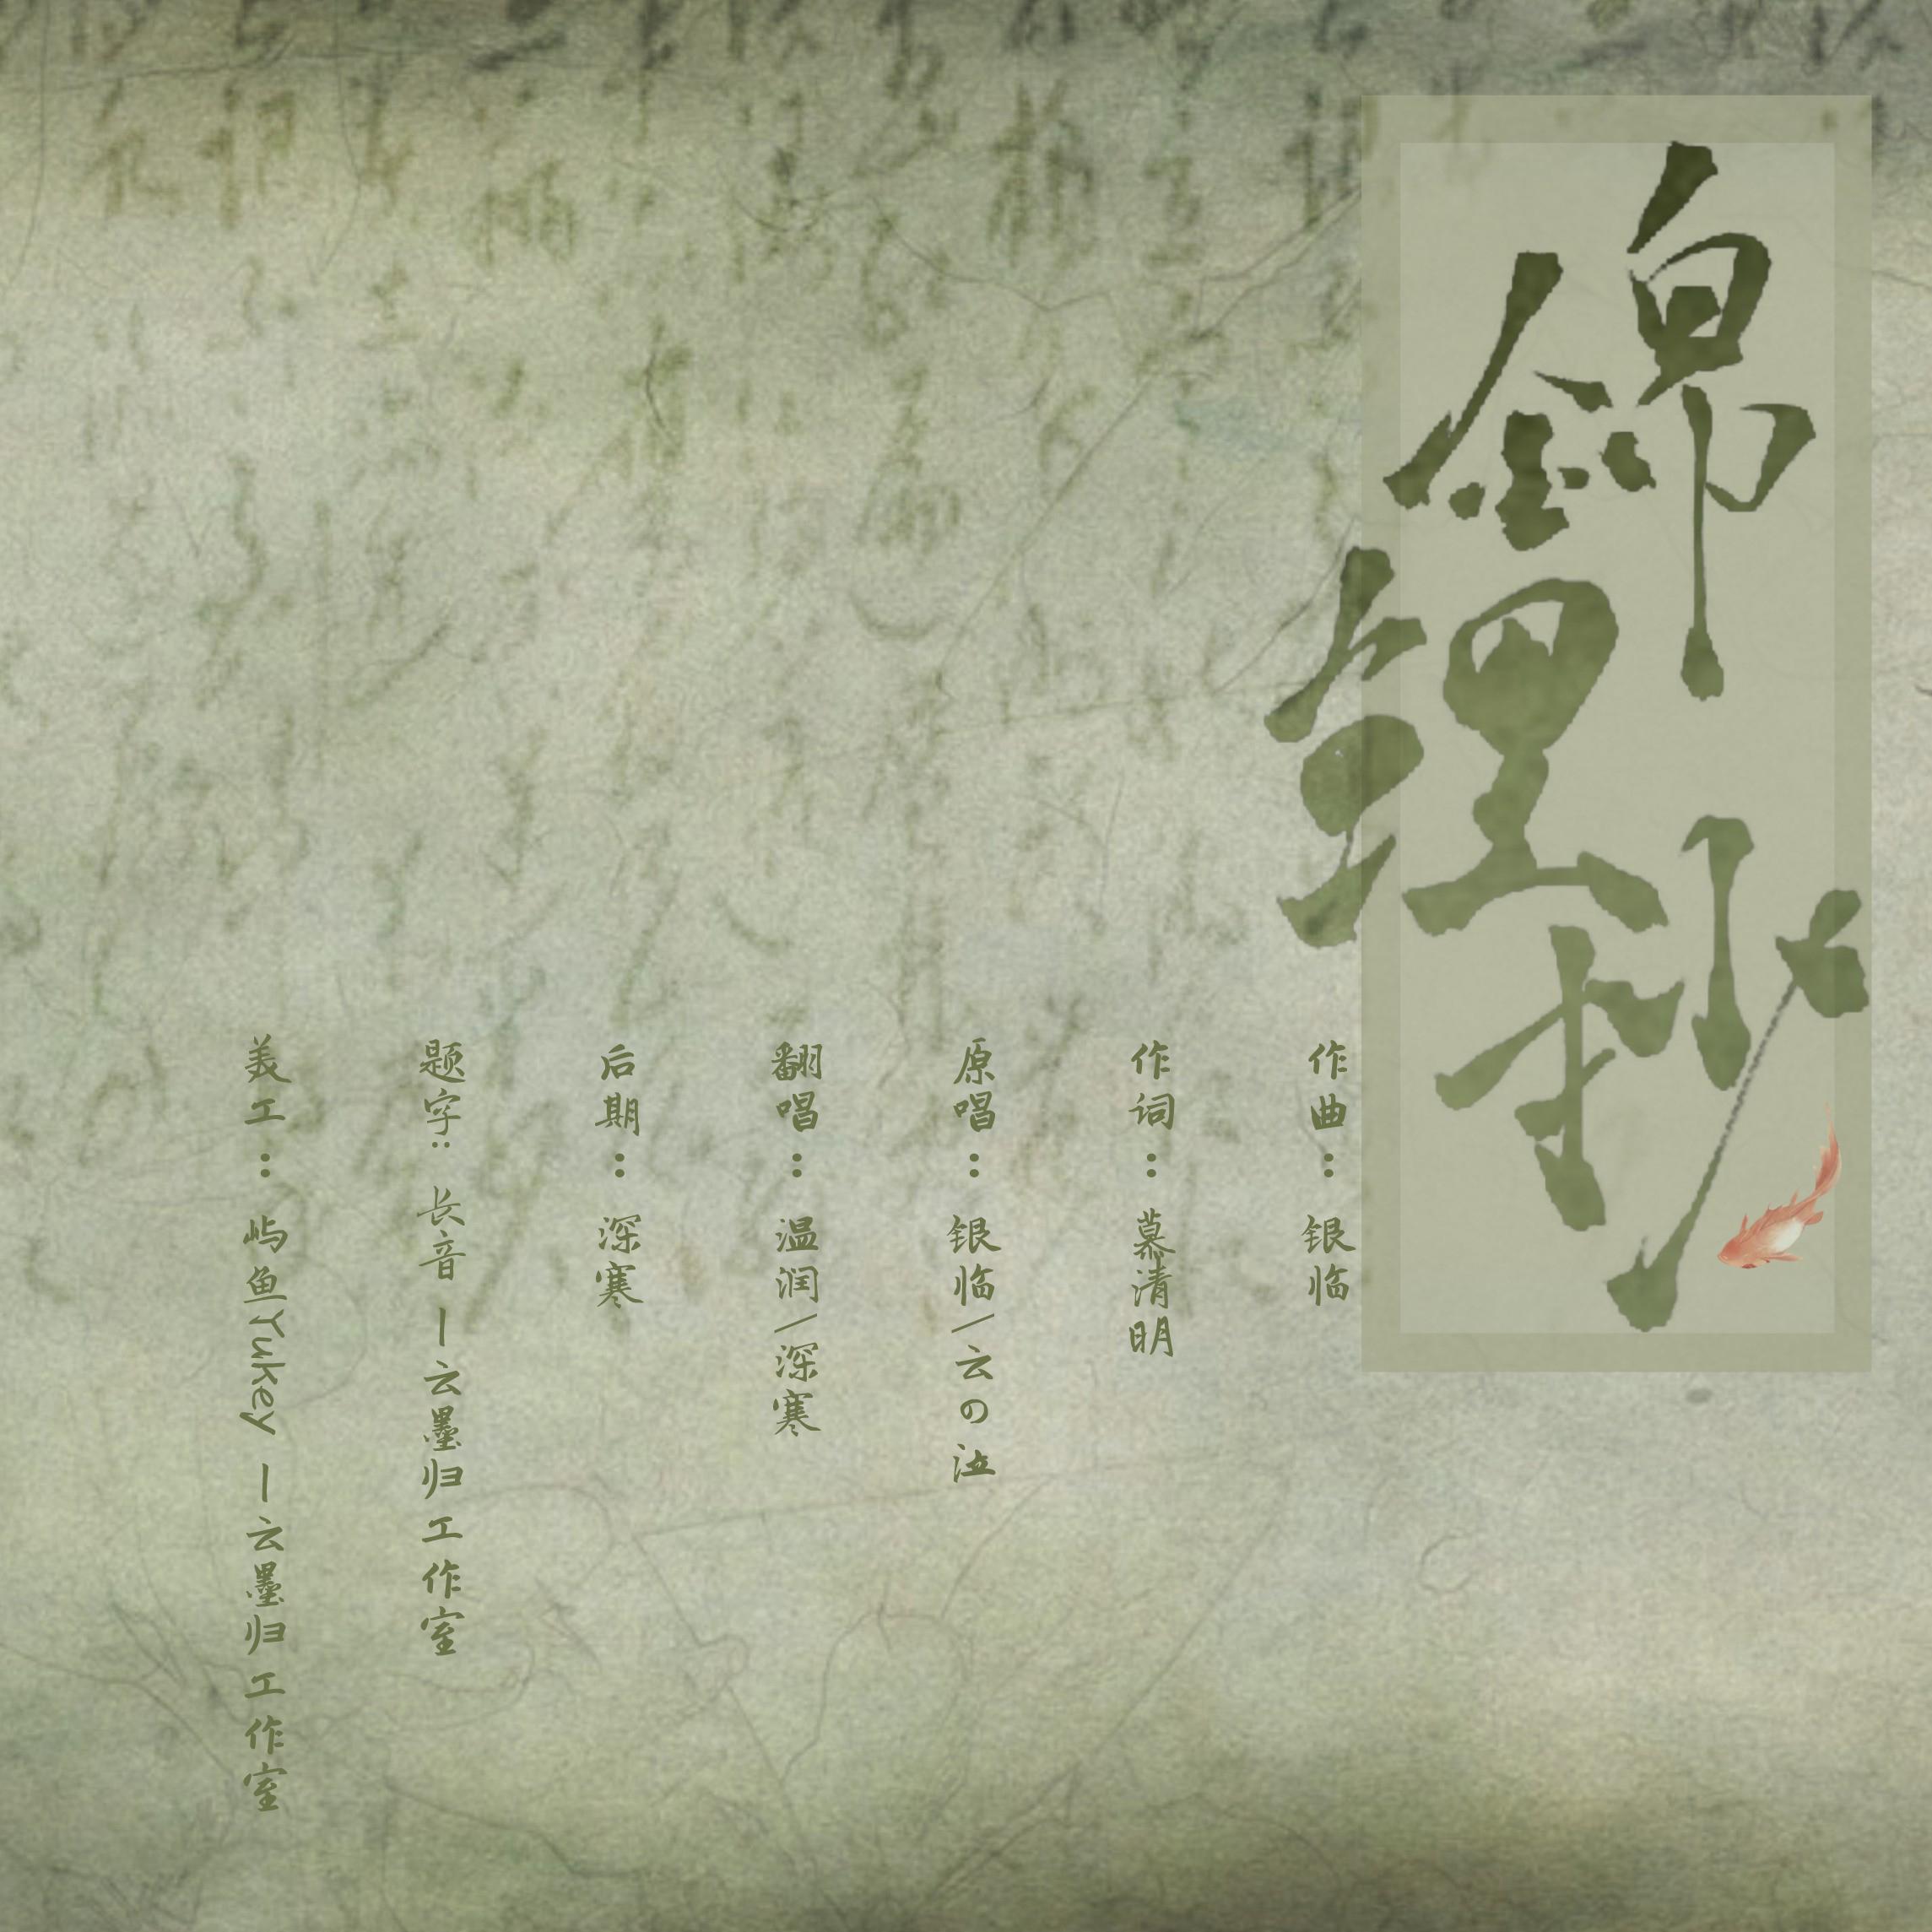 錦鲤抄
作曲：银临
作词：慕清明
原唱：银临/云の泣
翻唱：温润/深寒
后期：深寒
题字：长音—云墨归工作室
美工：屿鱼Yukey—云墨归工作室